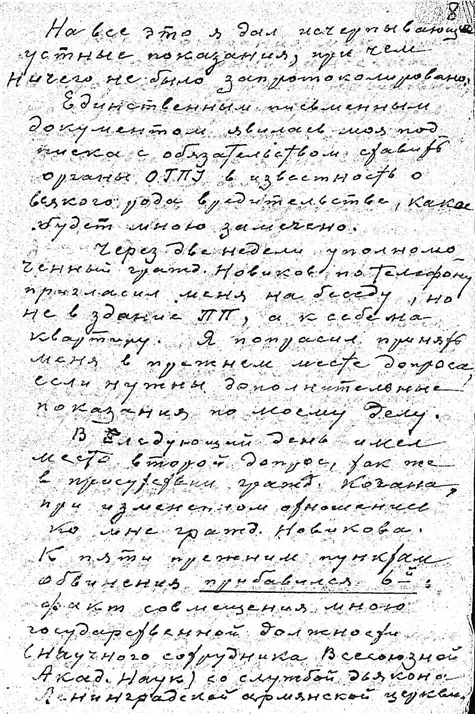 8
На все это я дал исчерпывающие
устные показания, при чем
ничего не было запротоколировано.
Единственным письменным
документом явилась моя под
писка с обязательством ставить
органы ОГПУ в известность о
всякого рода вредительстве, какое
будет мною замечено.
Через две недели уполномо
ченный гражд. Новиков, по телефону
пригласил меня на беседу, но
не в здание ПП, а к себе на
квартиру. Я попросил принять
меня в прежнем месте допроса,
если нужны дополнительные
показания по моему делу.
В следующий день имел
место второй допрос, так же
в присутствии гражд. Кочана,
при измененном отношении
ко мне гражд. Новикова.
К пяти прежним пунктам
обвинения прибавился 6-й:
факт совмещения мною
государственной должности
(научного сотрудника Всесоюзной
Акад. Наук) со службой дьякона
Ленинградской армянской церкви.